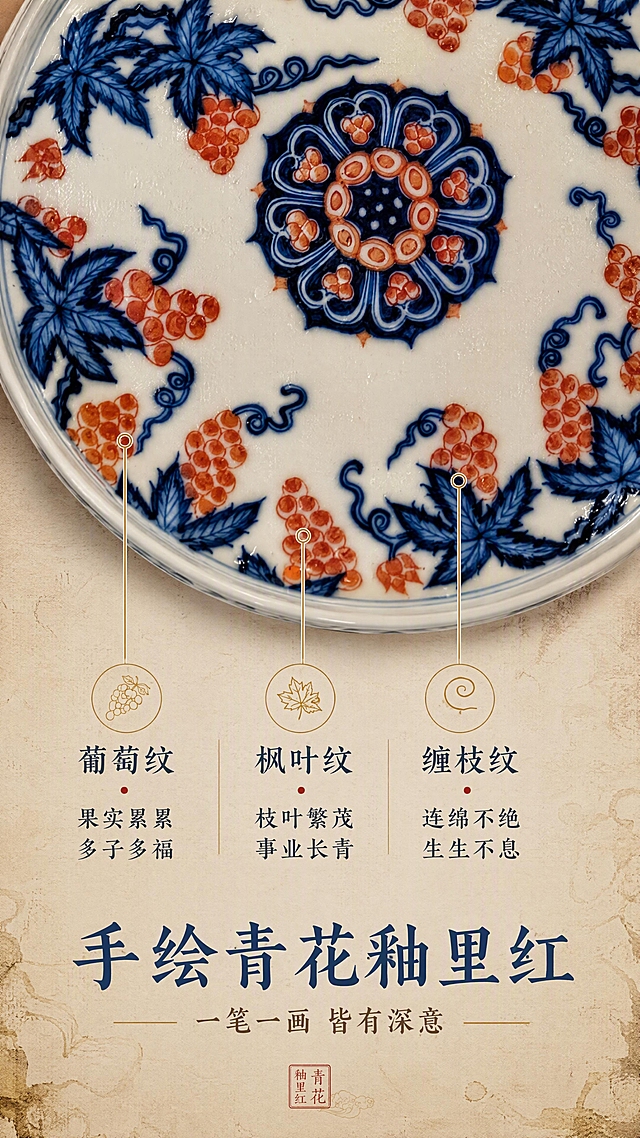 葡萄纹
果实累累
多子多福
枫叶纹
枝叶繁茂
事业长青
缠枝纹
连绵不绝
生生不息
手绘青花釉里红
一笔一画 皆有深意
青花
釉里红